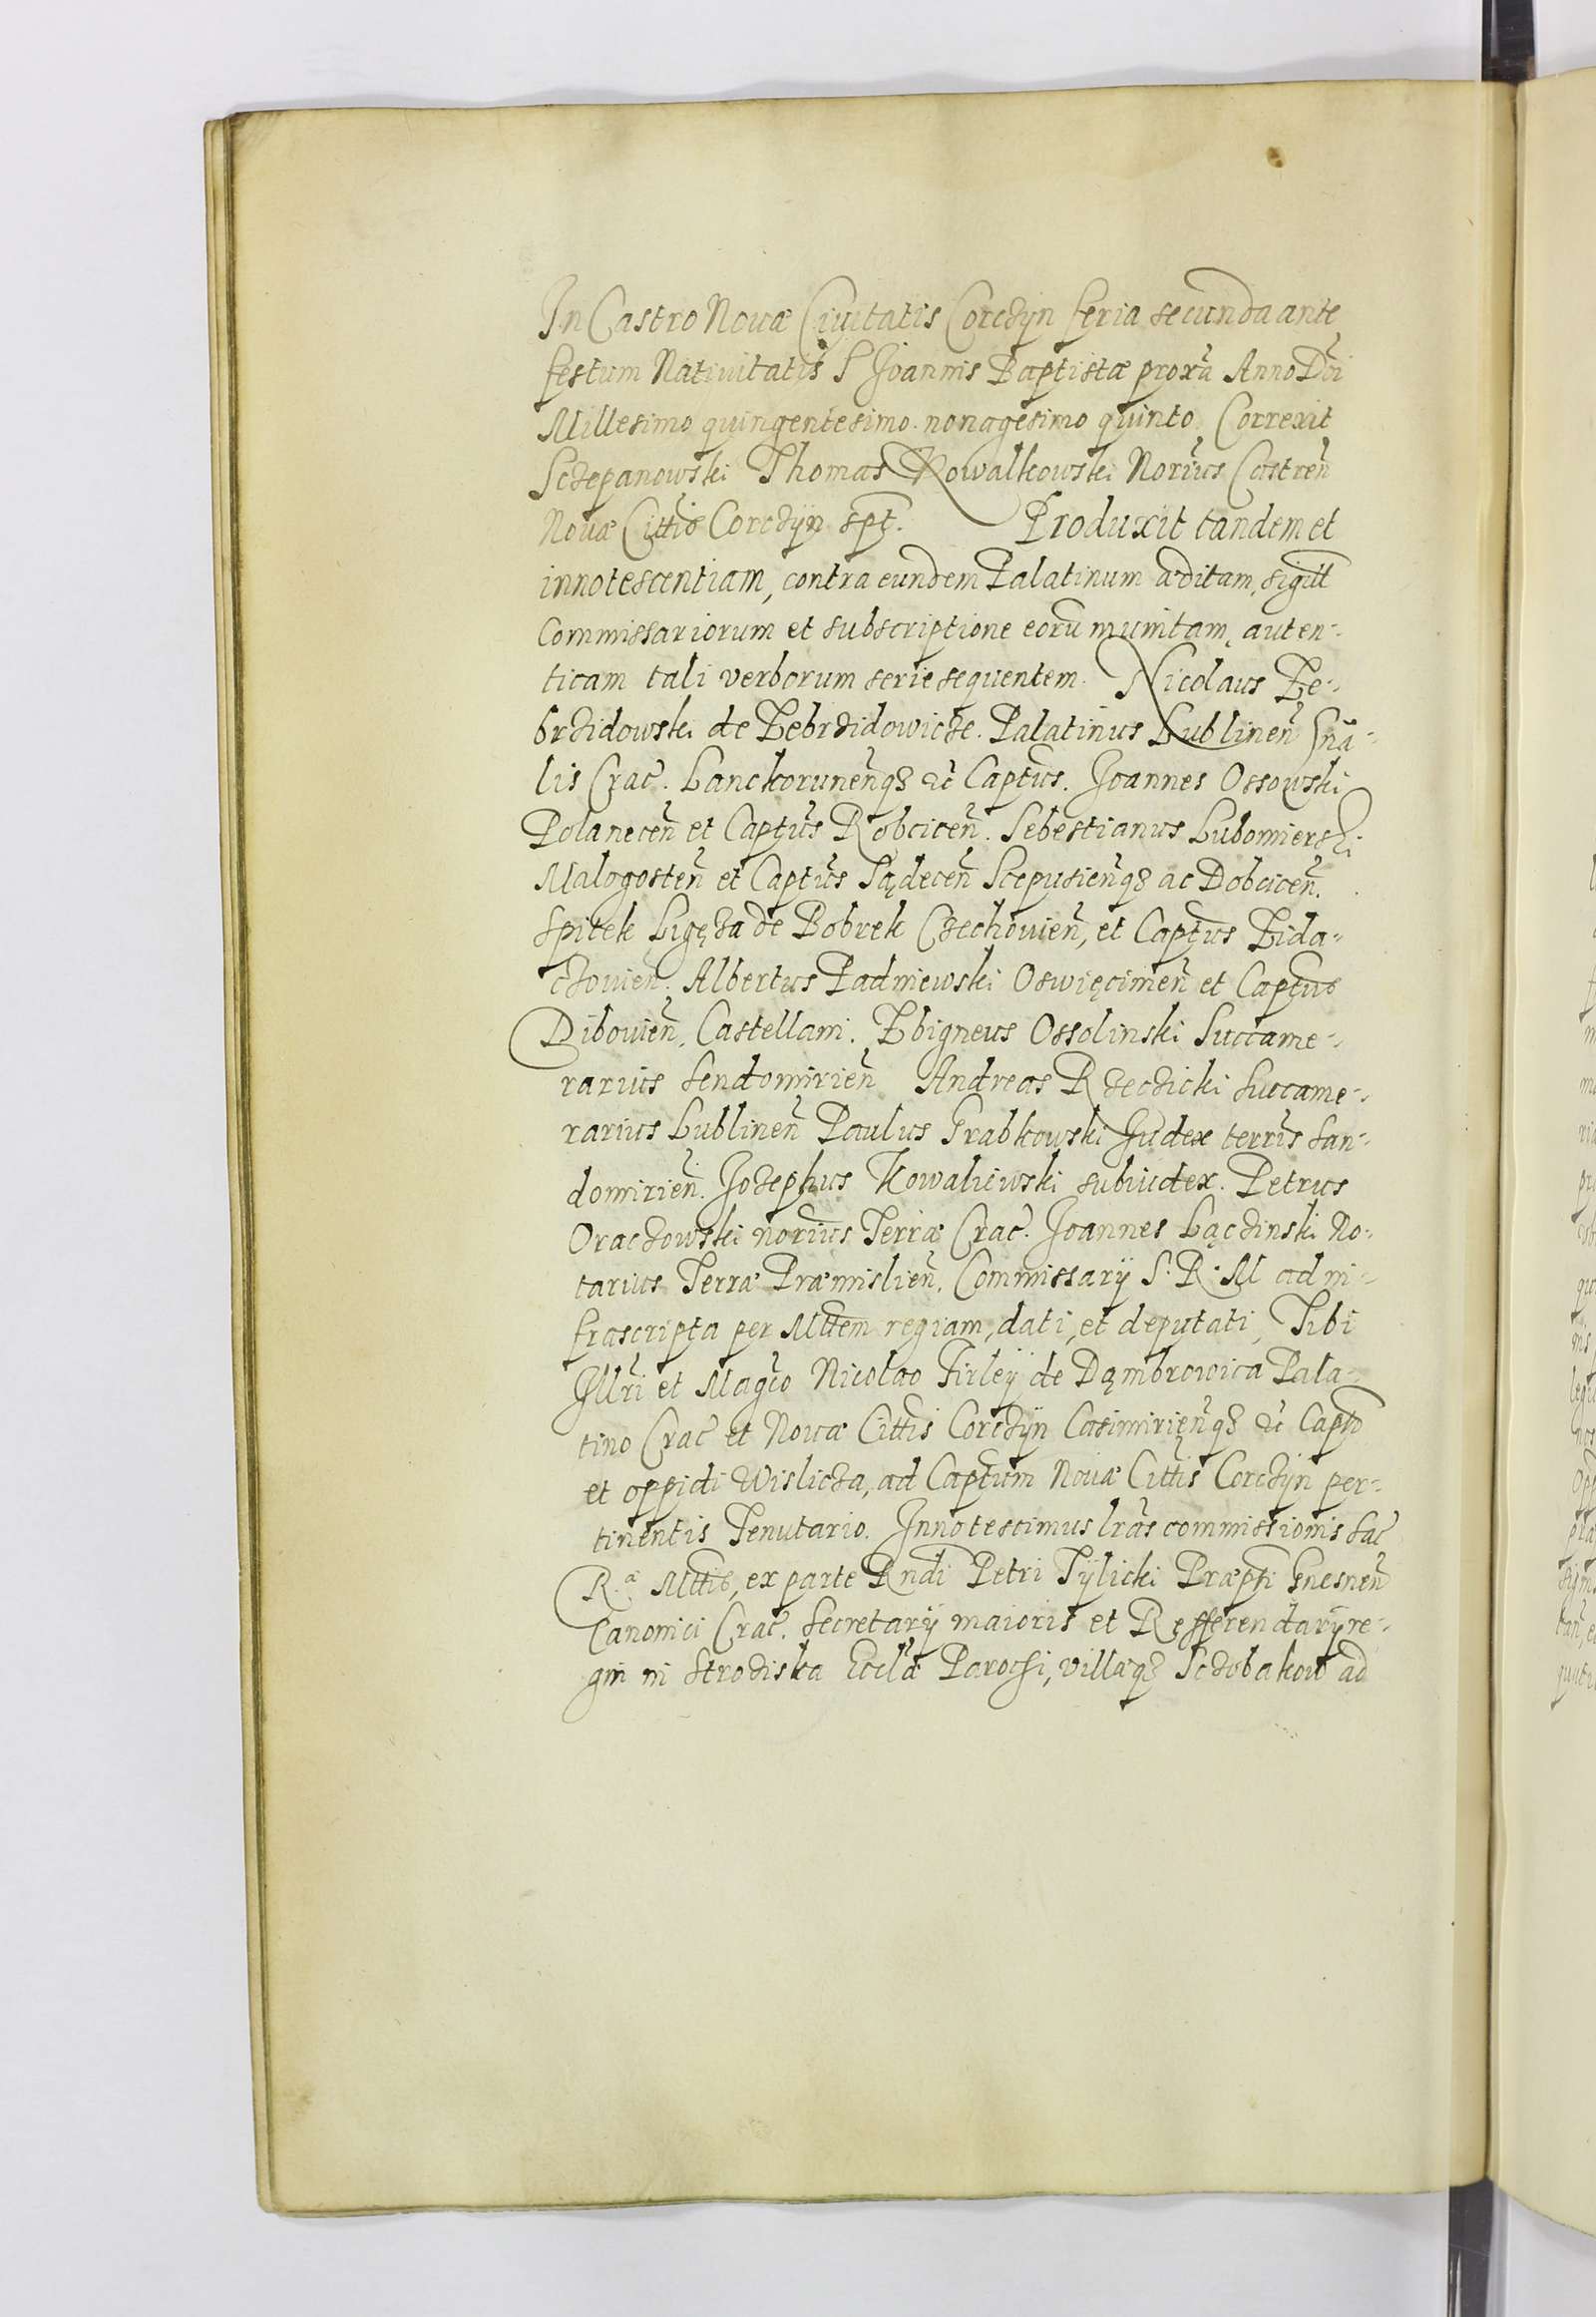 In Castro Nouæ Ciuitatis Corczyn feria secunda ante
festum Natiuitatis S Joannis Baptistæ proxa Anno Dni
Millesimo quingentesimo nonagesimo quinto. Correxit
Sczepanowski Thomas Kowalkowski Norius Castren
Nouæ Cittis Corczyn spt. Produxit tandem et
innotescentiam, contra eundem Palatinum æditam, sigill
Commissariorum et subscriptione eoru munitam, auten-
ticam tali verborum serie sequentem. Nicolaus Ze-
brzidowski de Zebrzidowicze. Palatinus Lublinen Gna-
lis Crac. Lanckorunenq3 &c Captus. Joannes Ossowski
Polanecen et Captus Robcicen. Sebestianus Lubomierski
Malogosten et Captus Sądecen Scepusienq3 ac Dobcicen.
Spitek Ligęza de Bobrek Czechouien, et Captus Zida-
czouien. Albertus Padniewski Oswięcimen et Captus
Dibouien, Castellani. Zbigneus Ossolinski Succame-
rarius Sendomirien Andreas Rzeczicki succame-
rarius Lublinen Paulus Grabkowski Judex terris San-
domirien. Jozephus Kowaliewski subiudex. Petrus
Oraczowski norius Terræ Crac. Joannes Łączinski No-
tarius Terræ Præmislien. Commissarij S. R. M ad in-
frascripta per Mttem regiam, dati, et deputati, Tibi
Illri et Magco Nicolao Firleÿ de Dąmbrowica Pala-
tino Crac et Nouæ Cittis Corczyn Casimirienq3 &c Capto
et oppidi Wislicza, ad Captum Nouæ Cittis Corczyn per-
tinentis Tenutario. Innotescimus lras commissionis Sac
R.a Mttis, ex parte Rndi Petri Tÿlicki Præpti Gnesnen
Canonici Crac. Secretarij maioris et Refferendarij re-
gni in Strodiska Eccłæ Parochi, villæq3 Sczobakow ad